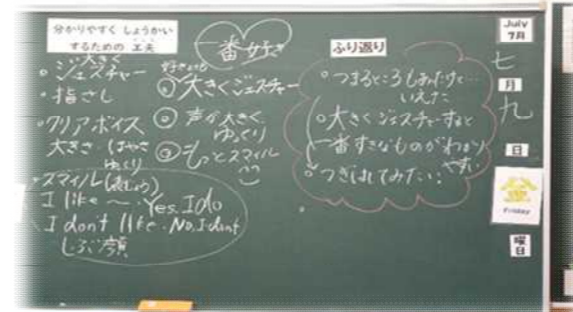 分かりやすく しょうかい
するための 工夫
大きく
・ジェスチャー
・指さし
・クリアボイス
大きさ・はやさ
ゆっくり
・スマイル
I like ～. Yes. I do
I don't like. No. I don't
しぶ顔
一番好き
① 大きくジェスチャー
② 声が大きく
ゆっくり
③ もっとスマイル
ふり返り
・つまるところもあたけど…
いえた
・大きくジェスチャーすると
一番すきなものがわかり
やすい
・つぎはしてみたい！
July
7月
七
月
九
日
Friday
曜
日